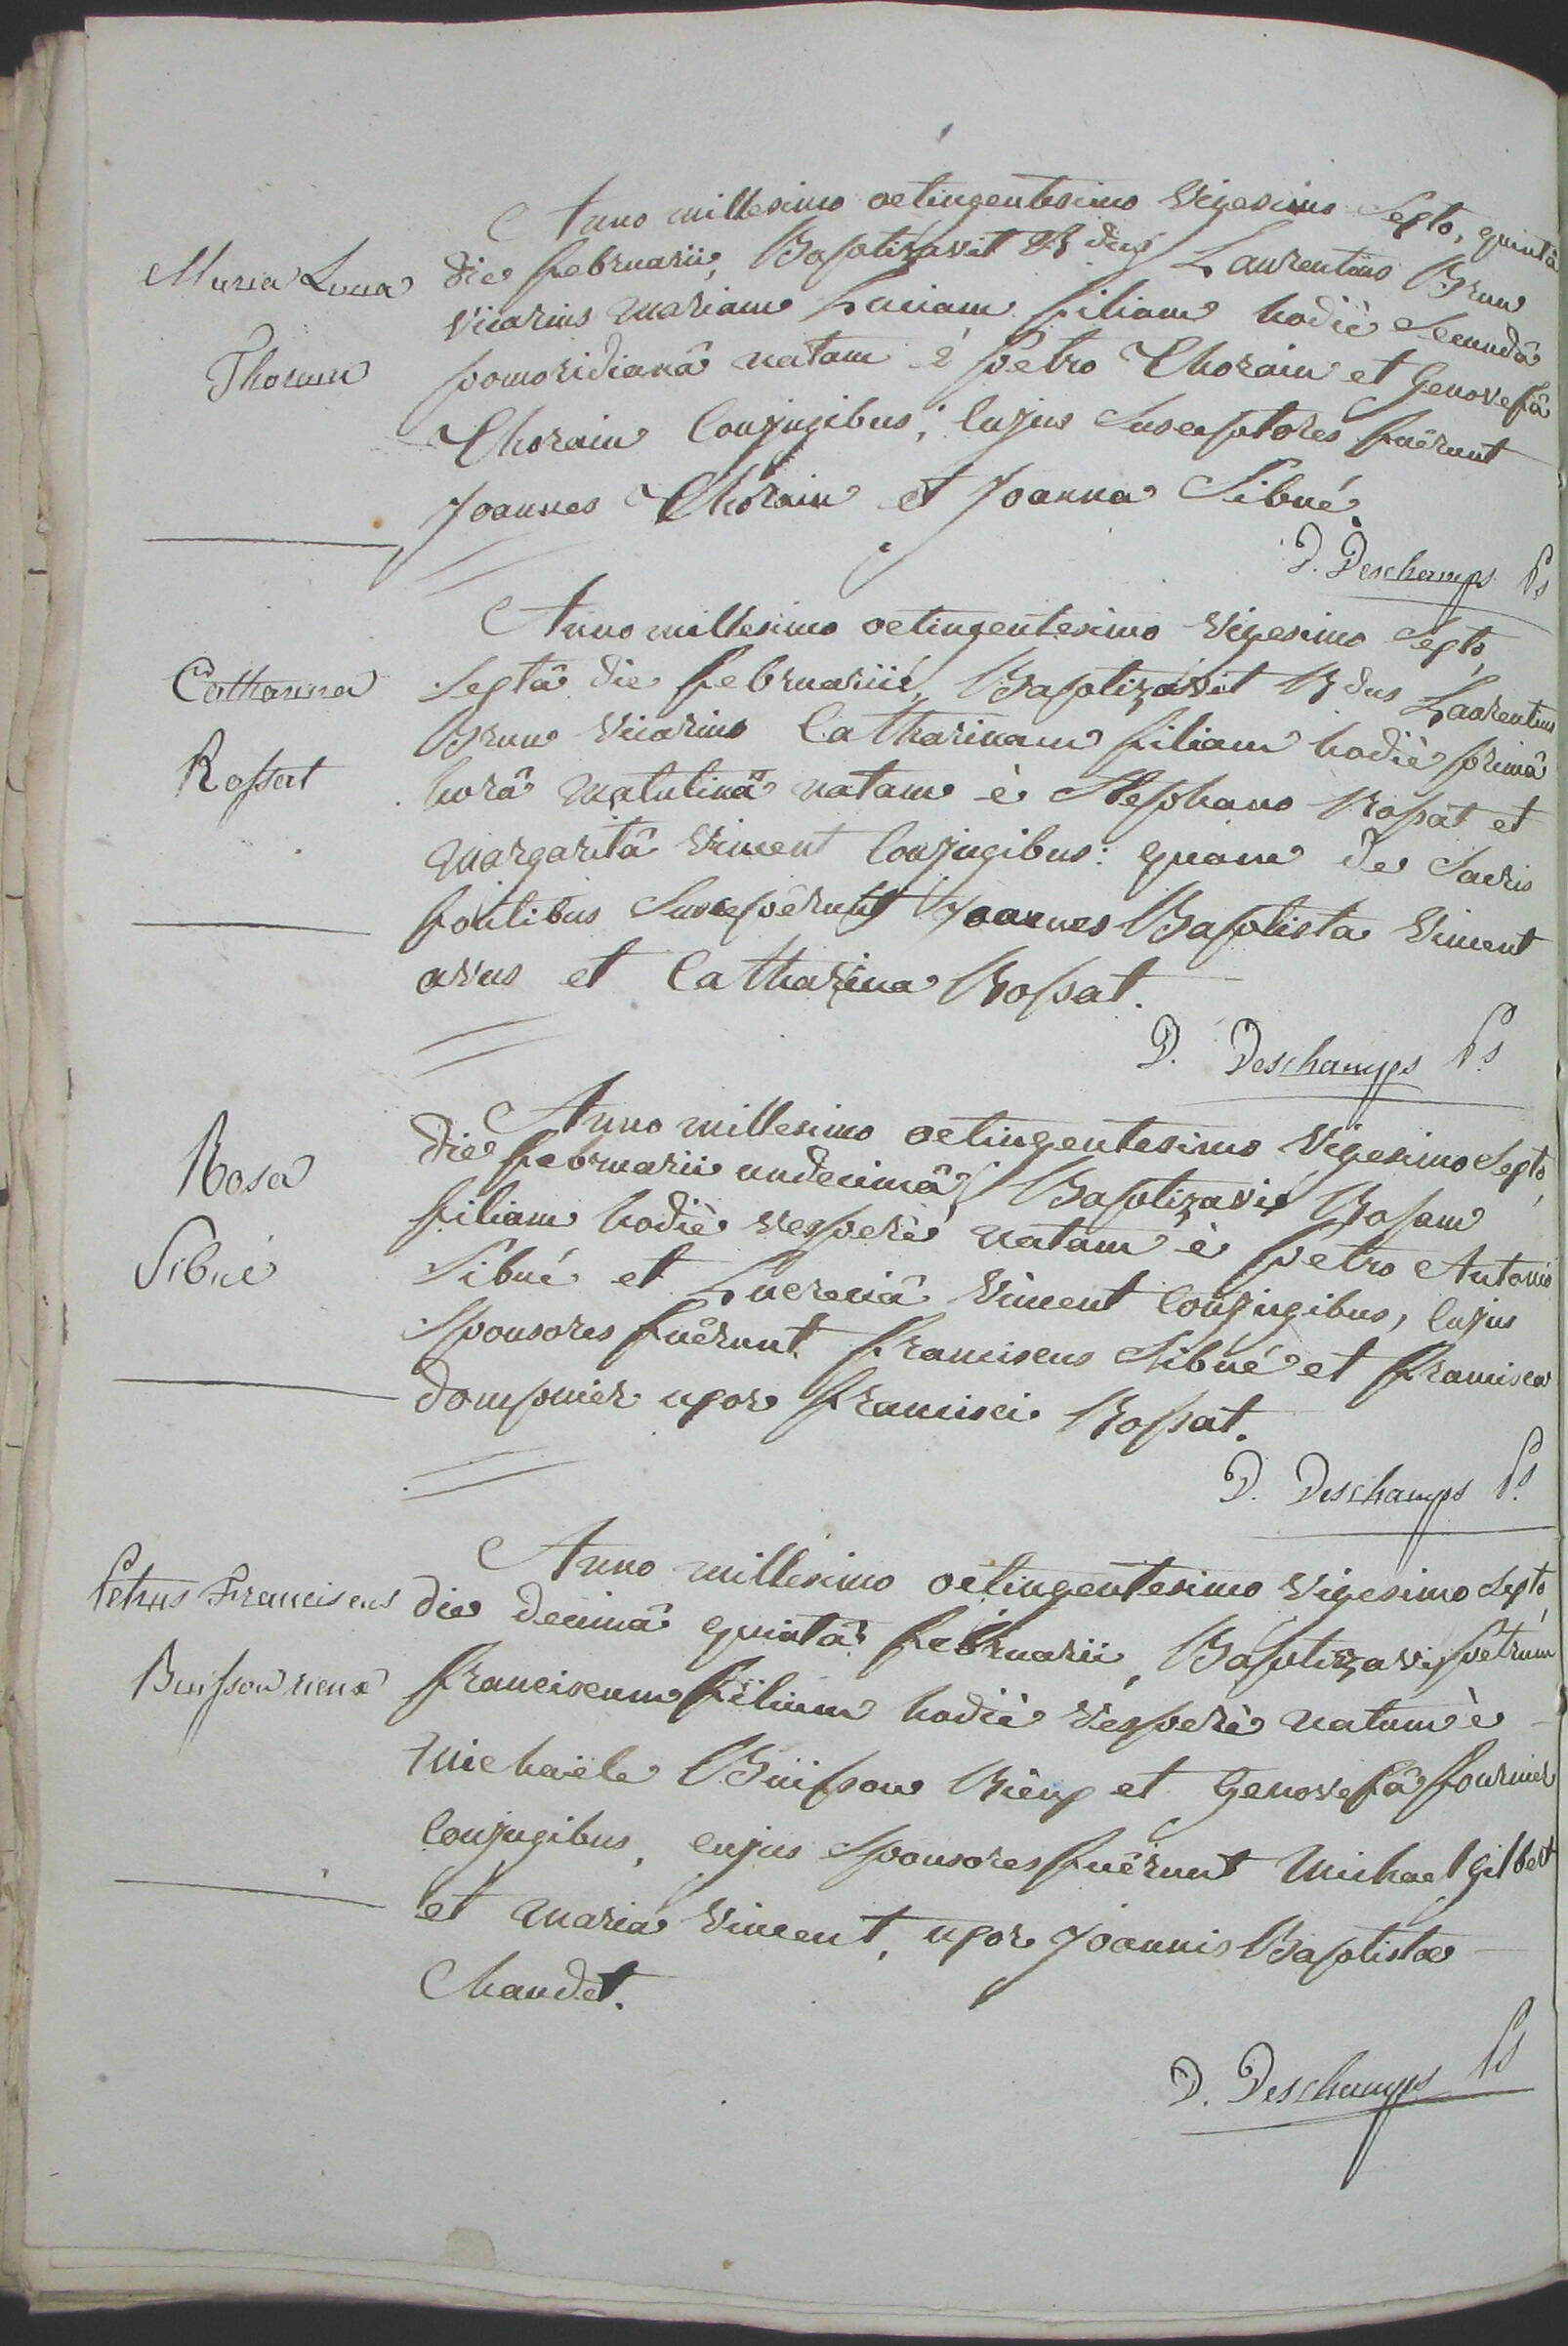 Anno millesimo octingentesimo Vigesimo Sexto, quintâ
Maria Lucia
die februarii, Baptizavit Rdus Laurentius Brun
vicarius mariam Luciam filiam hodiè Secundâ
Thorain
pomoridianâ natam è petro Thorain et Genovefâ
Thorain Conjugibus; Cujus Susceptores fuêrunt
Joannes Thorain et Joanna Sibué.
D. Deschamps Ps
Anno millesimo octingentesimo Vigesimo Sexto,
Catharina
Sextâ die februarii, Baptizavit Rdus Laurentius
Brun Vicarius Catharinam filiam hodiè primâ
Rossat
horâ matutinâ natam è Stephano Rossat et
Margaritâ Vincent Conjugibus: quam de Sacris
fontibus Suscepêrunt Joannes Baptista Vincent
avus et Catharina Rossat.
D. Deschamps Ps
Anno millesimo octingentesimo Vigesimo Sexto,
Rosa
die februarii undecimâ, Baptizavi Rosam
filiam hodiè vesperè natam è petro Antonio
Sibué
Sibué et Lucreciâ Vincent Conjugibus, Cujus
Sponsores fuêrunt franciscus Sibué et francisca
dompnier uxor francisci Rossat.
D. Deschamps Ps
Anno millesimo octingentesimo vigesimo Sexto,
Petrus Franciscus
die decimâ quintâ februarii, Baptizavi petrum
Buisson rieux
franciscum filium hodiè vesperè natum è
Michaële Buisson Rieux et Genovefâ fournier
Conjugibus, cujus Sponsores fuêrunt Michael gilbert
et maria Vincent, uxor Joannis Baptistæ
Chaudet.
D. Deschamps Ps